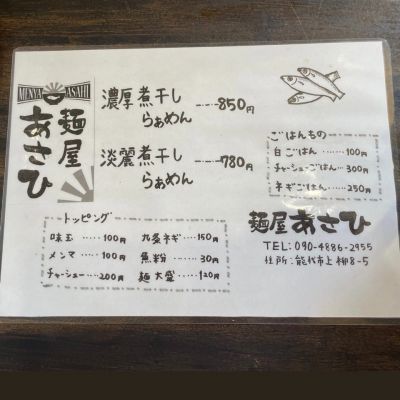 MENYA ASAHI
麺屋
あさひ
濃厚煮干し
らぁめん ……850円
淡麗煮干し
らぁめん ……780円
ごはんもの
白ごはん ……100円
チャーシューごはん…300円
ネギごはん……250円
トッピング
味玉……100円
メンマ……100円
チャーシュー…200円
九条ネギ…150円
魚粉……30円
麺大盛……120円
麺屋あさひ
TEL:090-4886-2955
住所:能代市上柳8-5